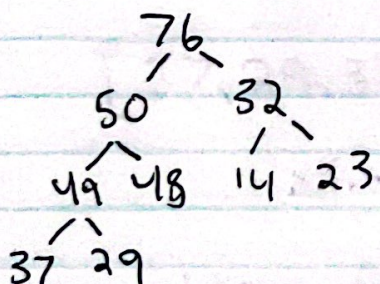 76
50 32
49 48 14 23
37 29